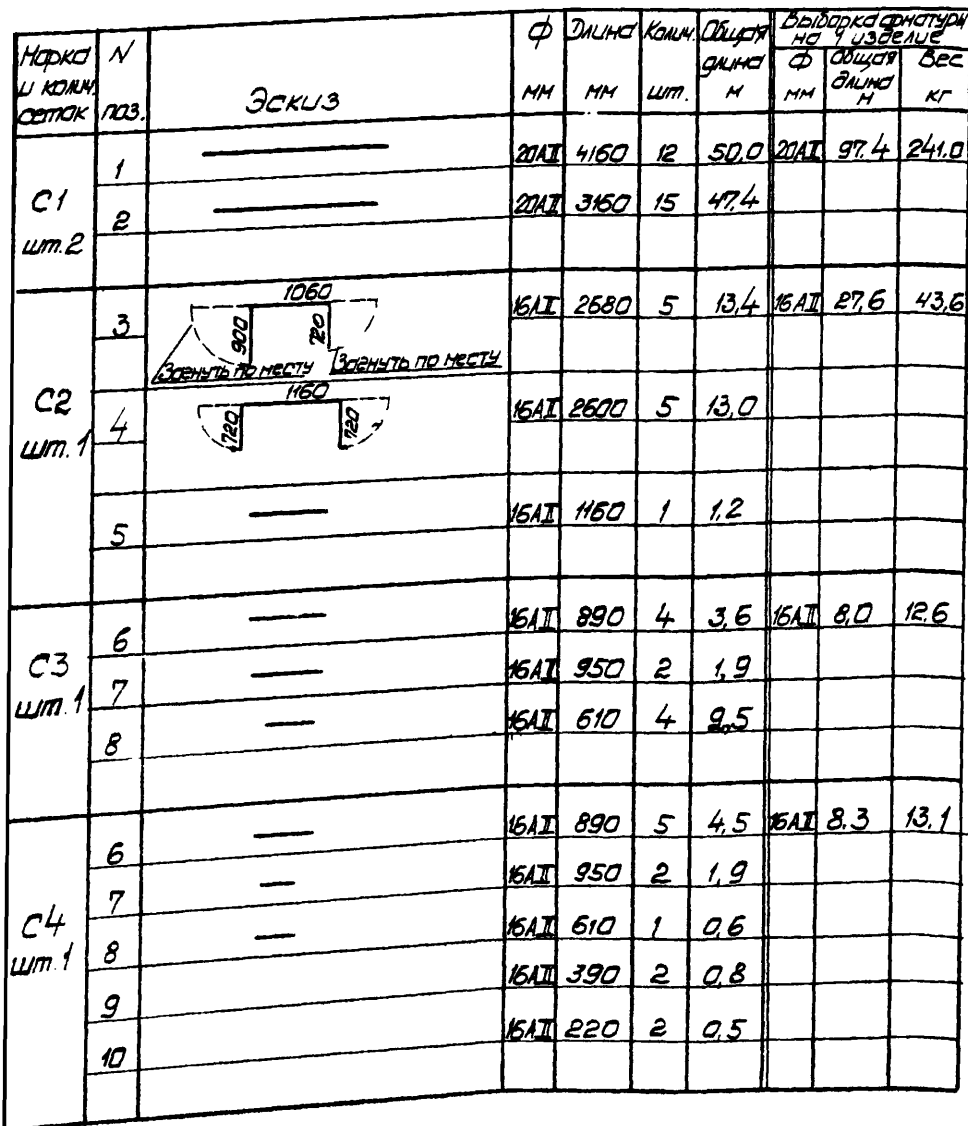 Марка и колич. сеток | N поз. | Эскиз | Ф мм | Длина мм | Колич. шт. | Общая длина м | Выборка арматуры на 1 изделие
Ф мм | Общая длина м | Вес кг
С1 шт.2 | 1 | 20АII | 4160 | 12 | 50,0 | 20АII | 97.4 | 241.0
2 | 20АII | 3160 | 15 | 47,4
С2 шт.1 | 3 | 1060 | 900 | 720 | Загнуть по месту | Загнуть по месту | 16АII | 2680 | 5 | 13,4 | 16АII | 27,6 | 43,6
4 | 1160 | 720 | 720 | 16АII | 2600 | 5 | 13,0
5 | 16АII | 1160 | 1 | 1,2
С3 шт.1 | 6 | 16АII | 890 | 4 | 3,6 | 16АII | 8,0 | 12.6
7 | 16АII | 950 | 2 | 1,9
8 | 16АII | 610 | 4 | 2,5
С4 шт.1 | 6 | 16АII | 890 | 5 | 4,5 | 16АII | 8.3 | 13,1
7 | 16АII | 950 | 2 | 1,9
8 | 16АII | 610 | 1 | 0,6
9 | 16АII | 390 | 2 | 0,8
10 | 16АII | 220 | 2 | 0,5